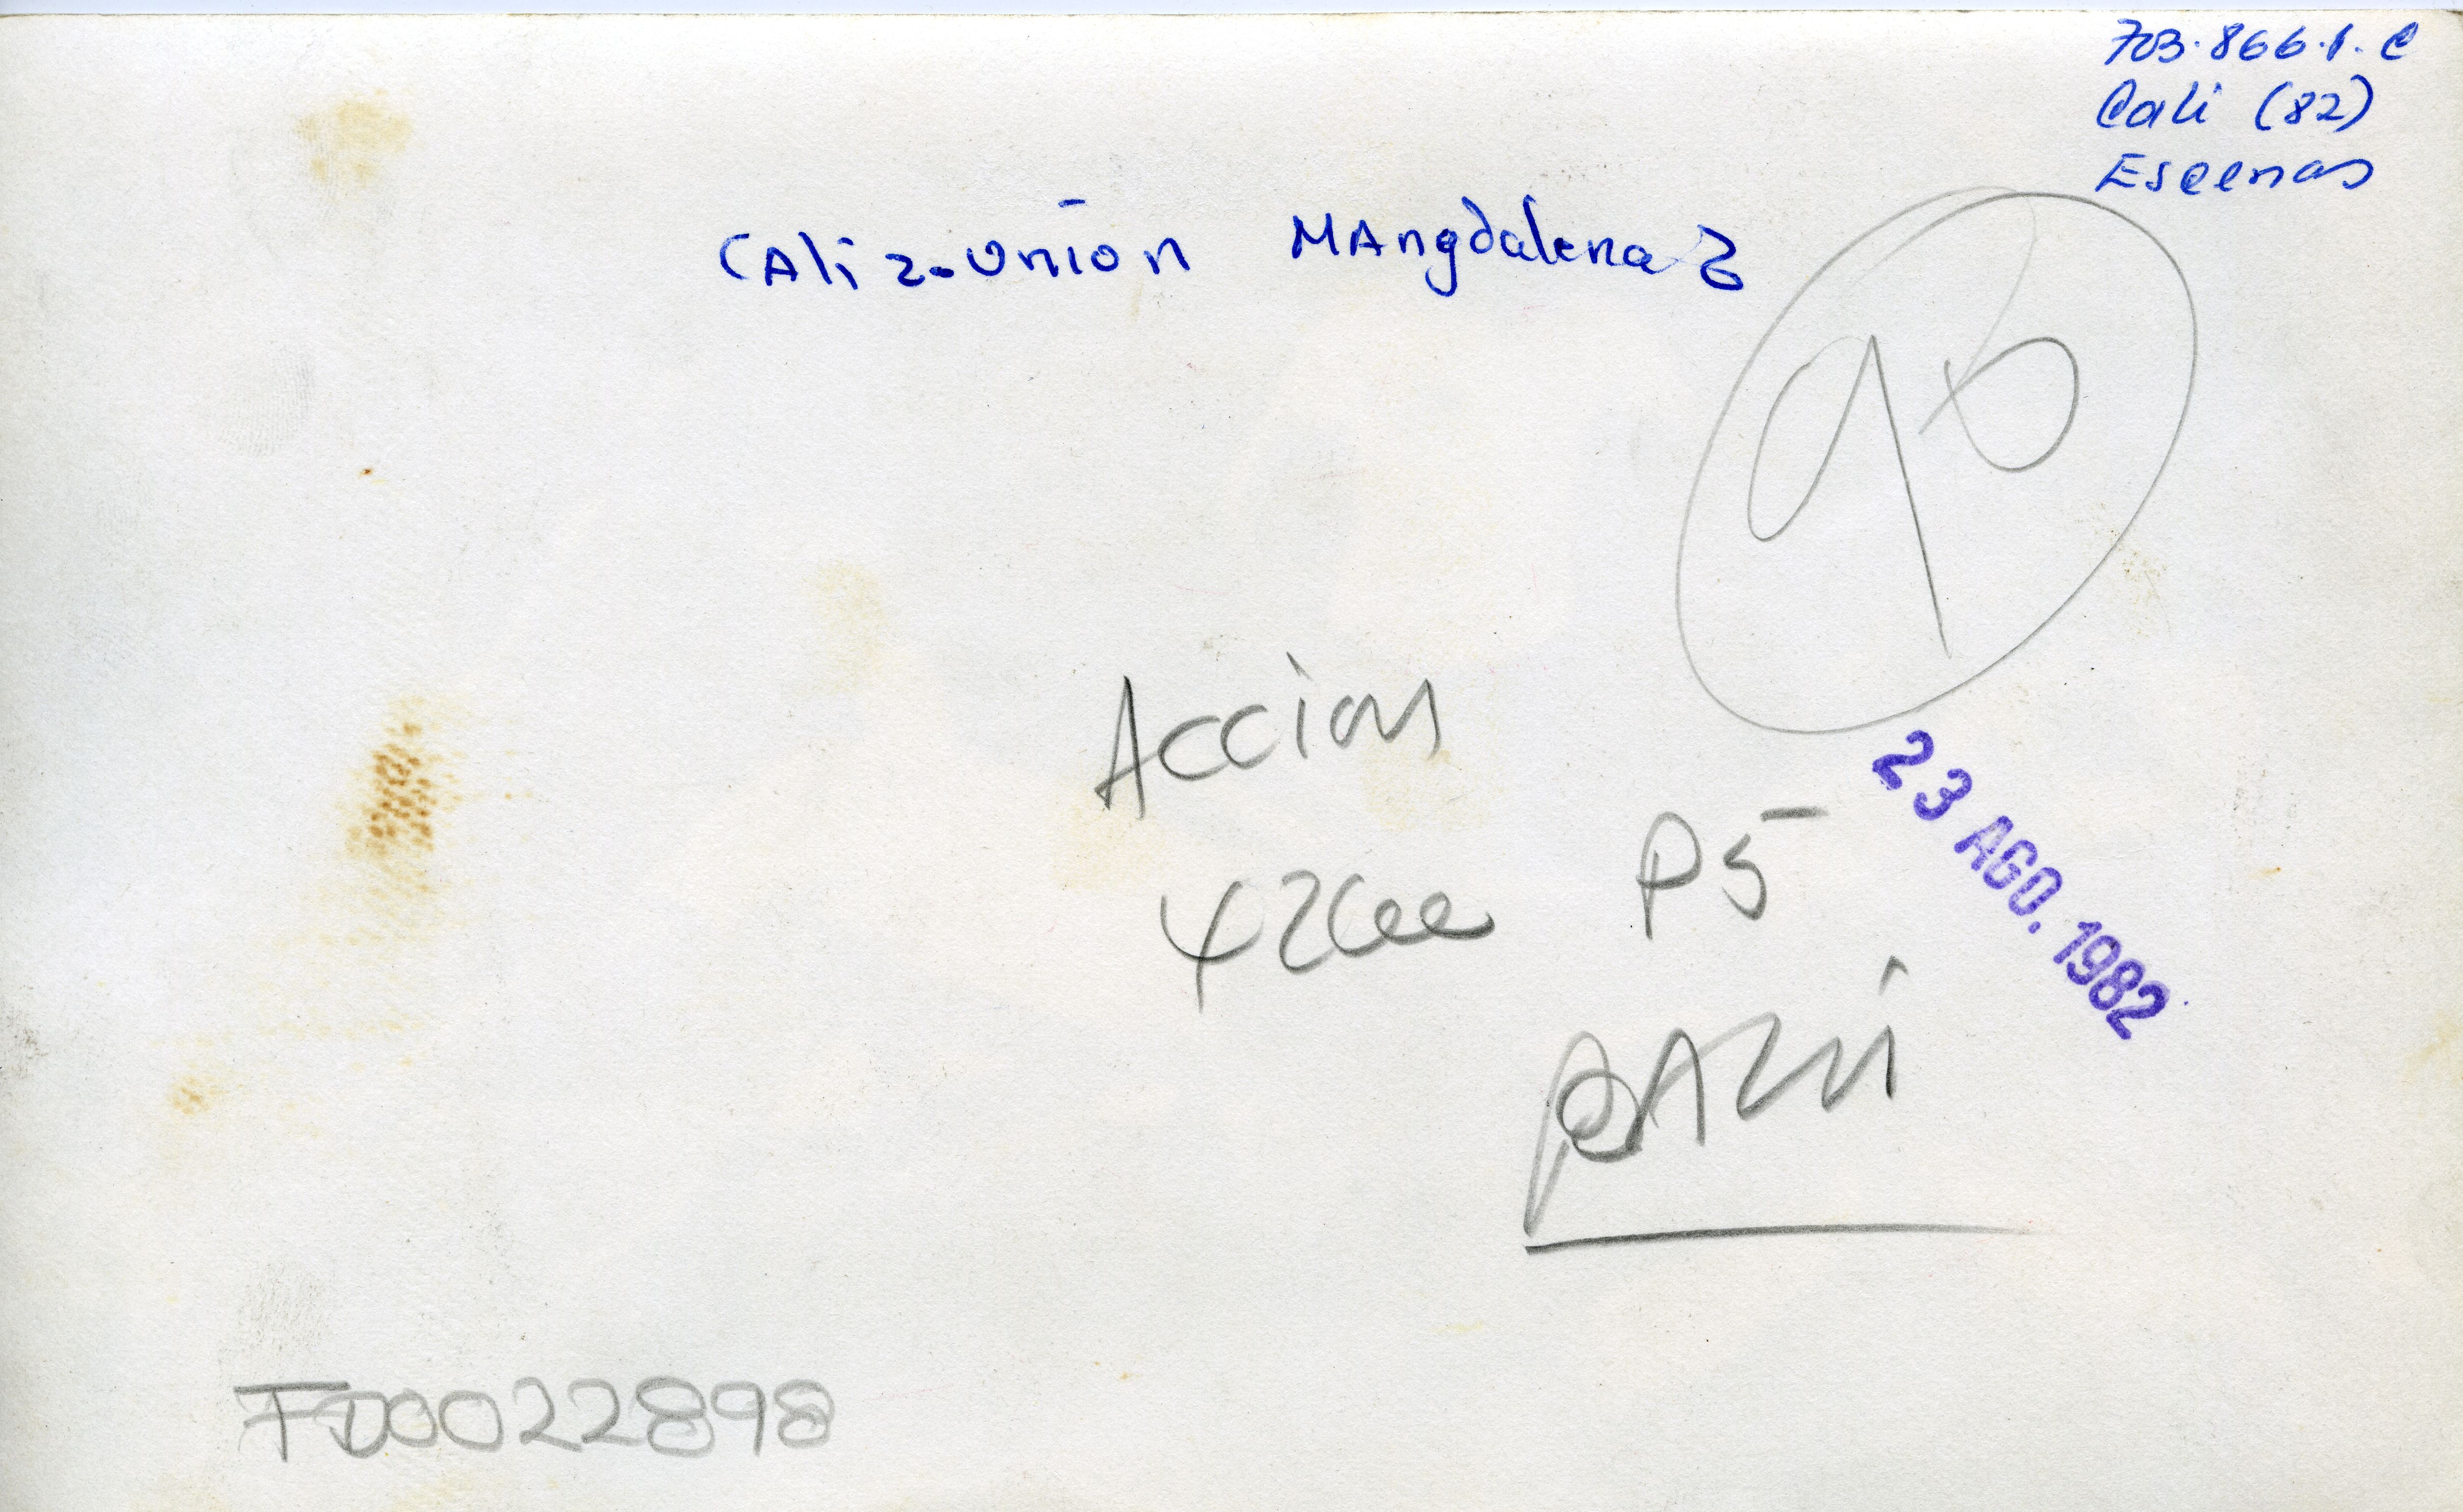 703.866.1.C
Cali (82)
Escenas
CAli 2-Unión MAngdalena 3
Accion
P5
23 AGO. 1982
FD0022898